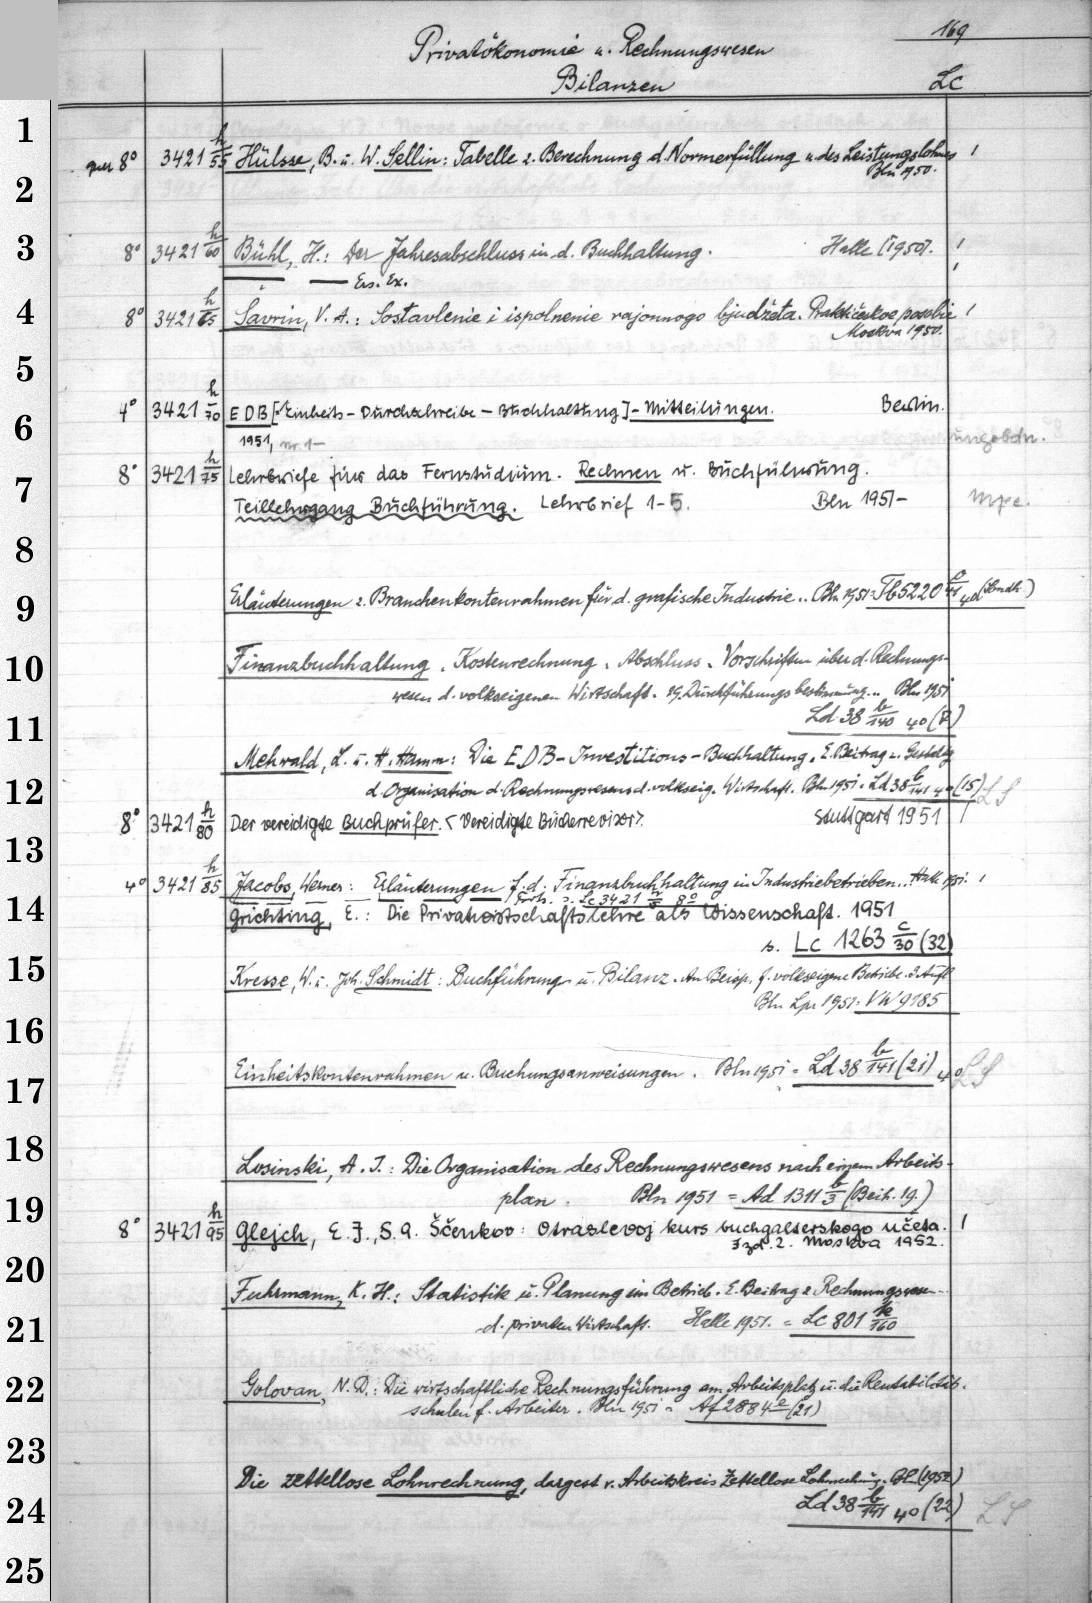 169
Privatökonomie u. Rechnungswesen
Bilanzen Lc
1
quer 8° 3421 h/55 Hülsse, B. u. W. Sellin: Tabelle z. Berechnung d. Normerfüllung u. des Leistungslohnes
Bln 1950.
2
3
8° 3421 h/60 Bühl, H.: Der Jahresabschluss in d. Buchhaltung. Halle [1950].
— — Ers. Ex.
4
8° 3421 h/65 Savrin, V. A.: Sostavlenie i ispolnenie rajonnogo bjudžeta. Praktičeskoe posobie
Moskva 1950.
5
4° 3421 h/70 EDB [Einheits-Durchschreibe-Buchhaltung]-Mitteilungen. Berlin.
6
1951, nr. 1- ungebdn.
8° 3421 h/75 Lehrbriefe für das Fernstudium. Rechnen u. Buchführung.
7
Teillehrgang Buchführung. Lehrbrief 1-5. Bln 1951-
8
9
Erläuterungen z. Branchenkontenrahmen für d. grafische Industrie.. Bln 1951 = Fb 5220
10
Finanzbuchhaltung, Kostenrechnung, Abschluss, Vorschriften über d. Rechnungs-
wesen d. volkseigenen Wirtschaft. 19. Durchführungsbestimmung.. Bln 1951
Ld 38 b/140 4° (7)
11
Mehwald, L. u. H. Hamm: Die EDB-Investitions-Buchhaltung. E. Beitrag z. Gestaltg
12
d. Organisation d. Rechnungswesens d. volkseig. Wirtschaft. Bln 1951 = Ld 38 b/141 4° (15) LS
8° 3421 h/80 Der vereidigte Buchprüfer. < Vereidigte Bücherrevisor>. Stuttgart 1951
13
4° 3421 h/85 Jacobs, Werner: Erläuterungen f. d. Finanzbuchhaltung in Industriebetrieben.. Halle 1951.
14
Grichting, E.: Die Privatwirtschaftslehre als Wissenschaft. 1951
s. Lc 1263 c/30 (32)
15
Kresse, W. u. Joh. Schmidt: Buchführung u. Bilanz. Am Beisp. f. volkseigene Betriebe. 3. Aufl.
Bln Lpz 1951 = VW 9185
16
17
Einheitskontenrahmen u. Buchungsanweisungen. Bln 1951 = Ld 38 b/141 (21) 4° LS
18
Losinski, A. I.: Die Organisation des Rechnungswesens nach einem Arbeits-
plan. Bln 1951 = Ad 1311 b/3 (Beih. 19.)
19
8° 3421 h/95 Glejch, E. J., S. A. Ščenkov: Otraslevoj kurs buchgalterskogo učeta.
Izd. 2. Moskva 1952.
20
Fuhrmann, K. H.: Statistik u. Planung im Betrieb. E. Beitrag z. Rechnungswesen
21
d. privaten Wirtschaft. Halle 1951. = Lc 801 k/160
22
Golovan, N. D.: Die wirtschaftliche Rechnungsführung am Arbeitsplatz u. die Rentabilitäts-
schulen f. Arbeiter. Bln 1951 = Af 2884 e (21)
23
Die zettellose Lohnrechnung, dargest. v. Arbeitskreis Zettellose Lohnrechnung. Bln (1952)
24
Ld 38 b/141 4° (22) LS
25